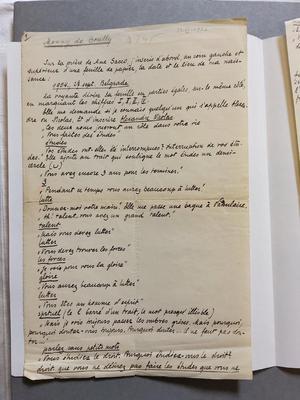 Monny de Boully
Sur la prière de Mme Sacco j'inscris d'abord, au coin gauche et
supérieur d'une feuille de papier, la date et le lieu de ma nais-
sance:
1904, 27 sept. Belgrade
La voyante divise la feuille en parties égales, sur le même côté,
en marquant les chiffres I, II, III, IV
Elle me demande si je connais quelqu'un qui s'appelle Alexan-
dre ou Nicolas. Et d'inscrire Alexandre Nicolas
"Ces deux noms joueront un rôle dans votre vie
"Vous faites des études
études
"Ces études ont-elles été interrompues? Interruption de vos étu-
des." Elle ajoute un trait qui souligne le mot études un demi-
cercle (∪)
"Vous avez encore 3 ans pour les terminer.
3
"Pendant ce temps vous aurez beaucoup à lutter!
lutte
"Donnez-moi votre main! Elle me passe une bague à l'annulaire.
"Ah! talent, vous avez un grand talent."
talent
"Mais vous devez lutter"
lutter
"Vous devez trouver les forces"
les forces
"Je vois pour vous la gloire"
gloire
"Vous aurez beaucoup à lutter!
lutter
"Vous êtes un homme d'esprit"
spirtuel (le l barré d'un trait, le mot presque illisible)
"Mais je vois toujours passer les ombres grises. Mais pourquoi,
pourquoi doutez-vous toujours. Pourquoi douter. Il ne faut pas dou-
ter."
parlez sans petits mots
"Vous étudiez le droit. Pourquoi étudiez-vous le droit?
droit que vous ne désirez pas faire les études que vous ne